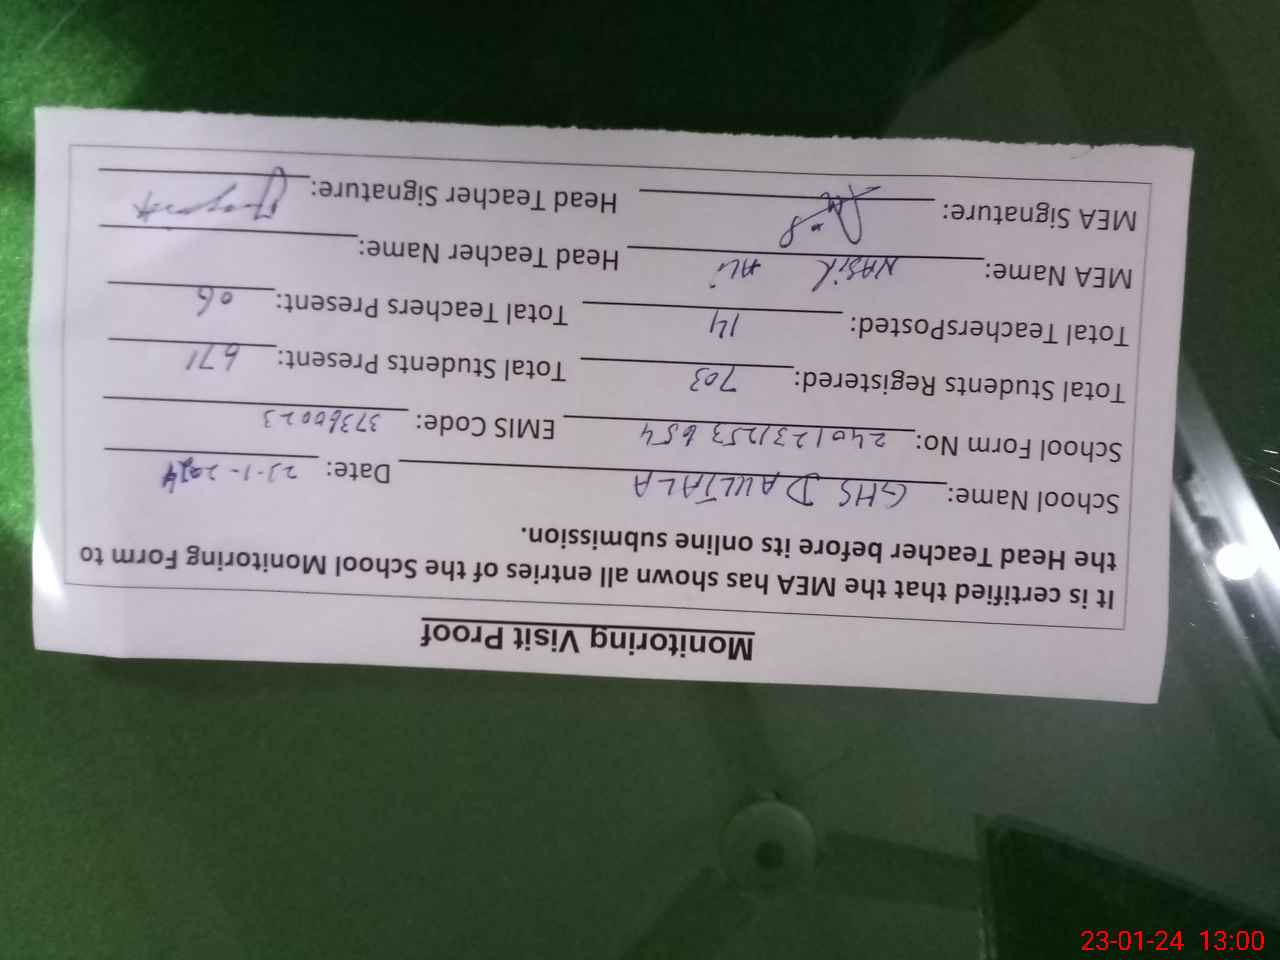 Monitoring Visit Proof
It is certified that the MEA has shown all entries of the School Monitoring Form to
the Head Teacher before its online submission.
School Name: GHS DAULTALA Date: 23-1-2024
School Form No: 2401231253654 EMIS Code: 37360023
Total Students Registered: 703 Total Students Present: 671
Total TeachersPosted: 14 Total Teachers Present: 06
MEA Name: NASIR ALi Head Teacher Name:
MEA Signature: Head Teacher Signature:
23-01-24 13:00